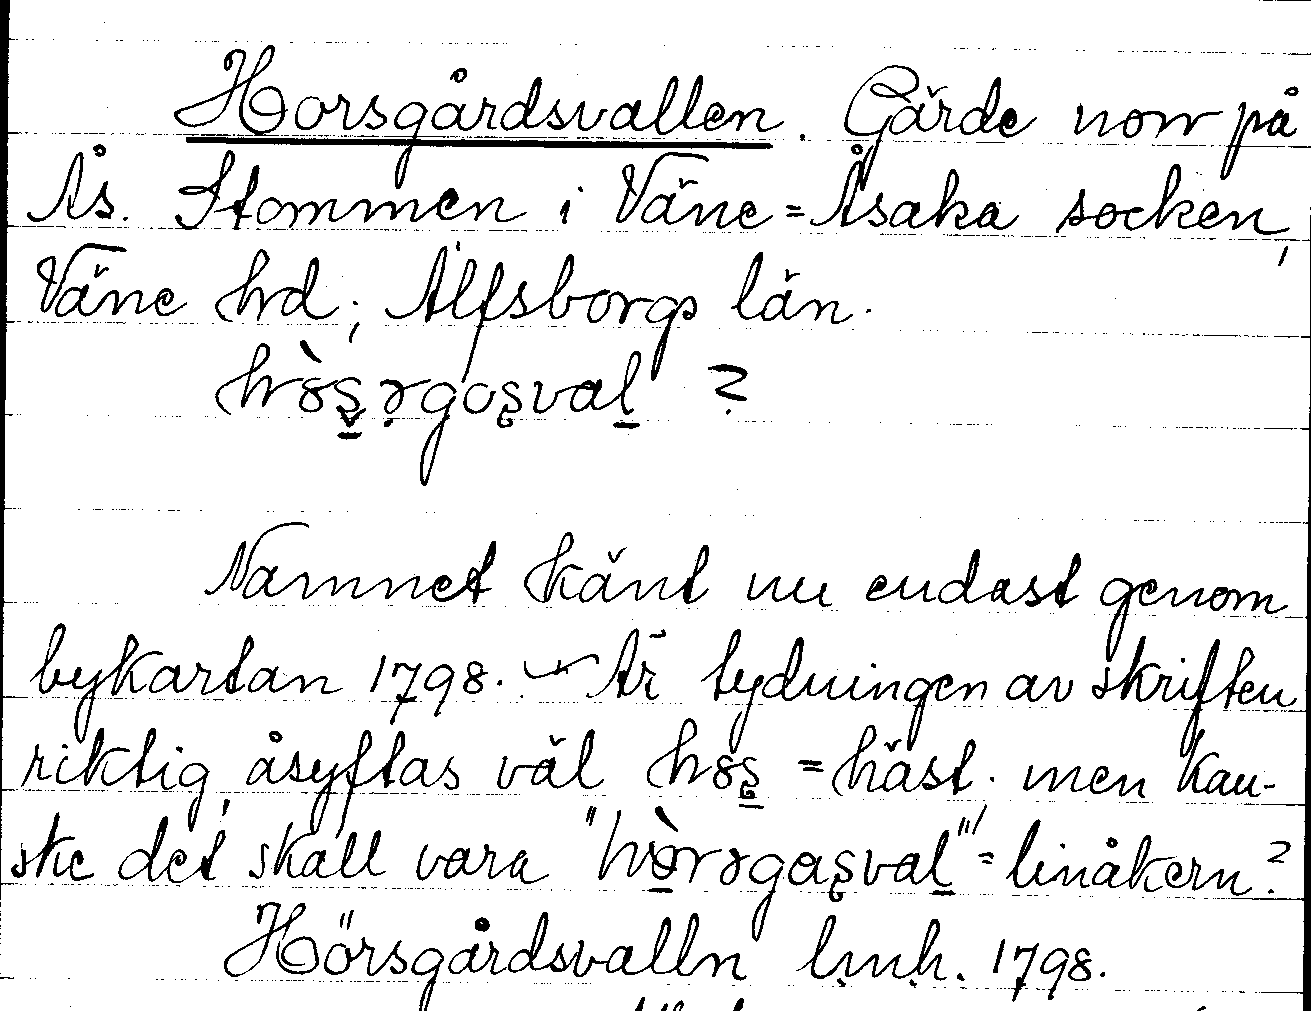 Horsgårdsvallen. Gärde norr på
Ås. Stommen i Väne=Åsaka socken,
Väne hd; Älfsborgs län.
?
Namnet känt nu endast genom
bykartan 1798. – Är tydningen av skriften
riktig, åsyftas väl = häst. men kan-
ske det skall vara = linåkern?
Hörsgårdsvalln l.m.h. 1798.